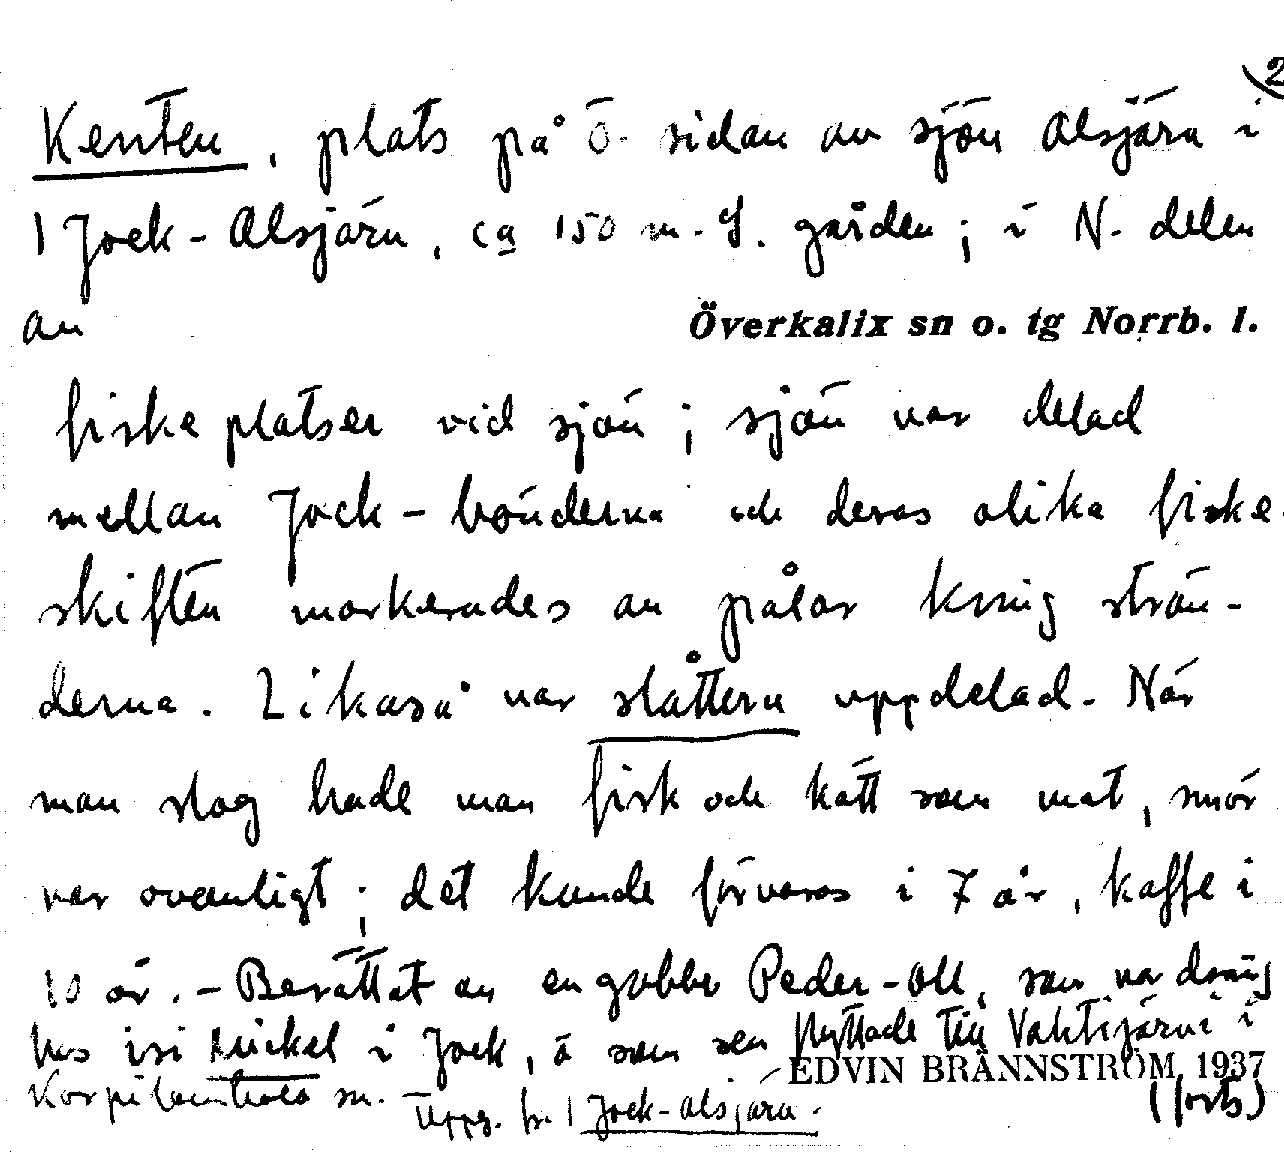 2
Kenten, plats på Ö. sidan av sjön Alsjärv i
1 Jock-Alsjärv, ca 150 m. S. gården; i N. delen
av
Överkalix sn o. tg Norrb. l.
fiskeplatser vid sjön; sjön var delad
mellan Jock-bönderna och deras olika fiske-
skiften markerades av pålar kring strän-
derna. Likaså var slåttern uppdelad. När
man slog hade man fisk och kött som mat, smör
var ovanligt; det kunde förvaras i 7 år, kaffe i
10 år. - Berättat av en gubbe Peder-Oll, som var dräng
hos isi Mickel i Jock, o som sen flyttade till Vahtijärvi i
EDVIN BRÄNNSTRÖM, 1937
Korpilombolo sn. - Uppg. fr. 1 Jock-Alsjärv.
(forts)